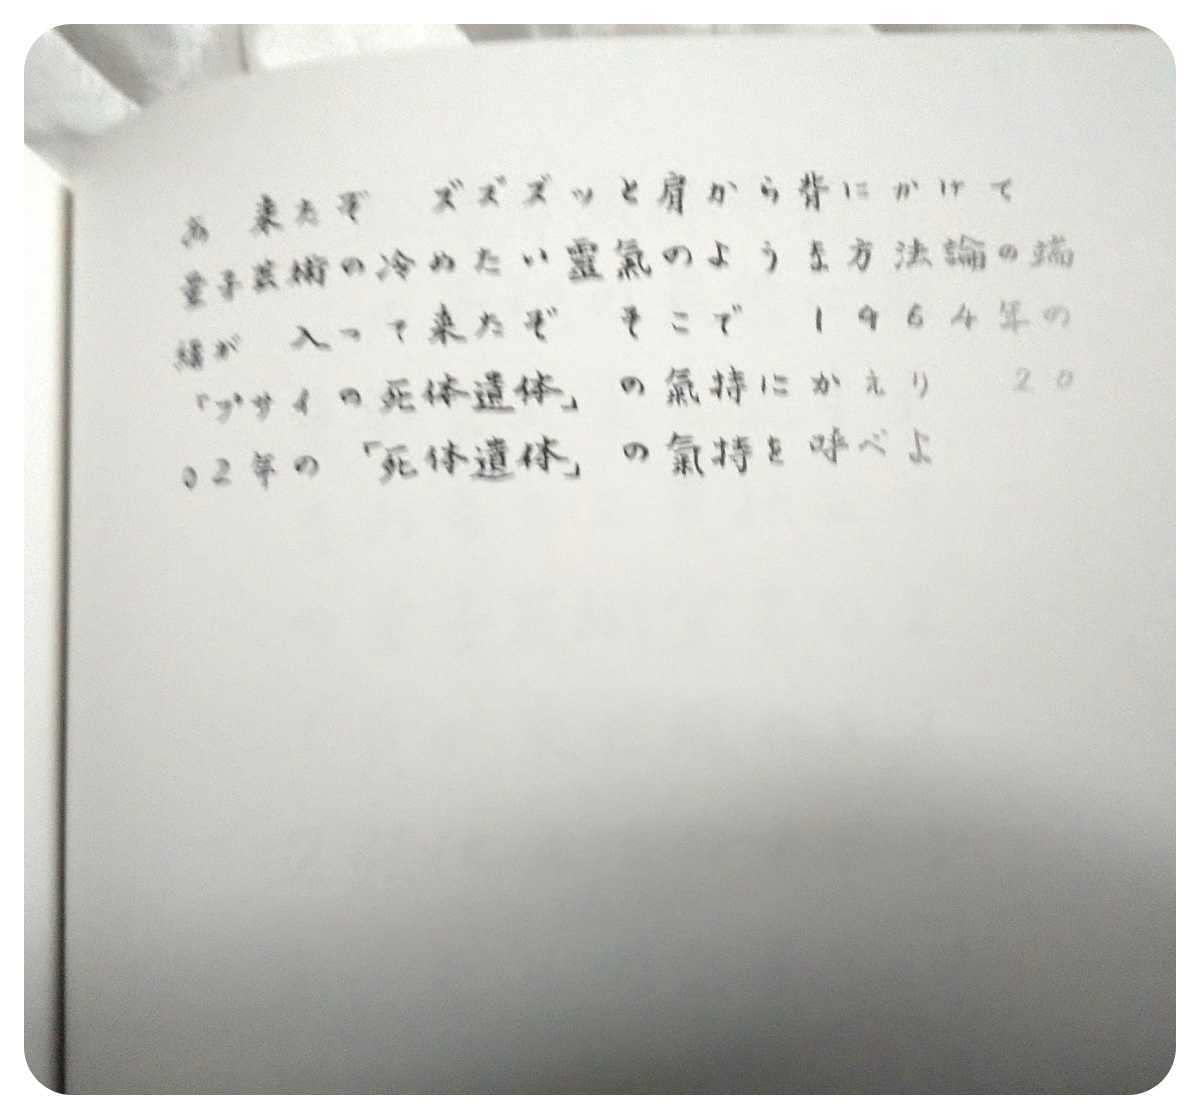 あ 来たぞ ズズズッと肩から背にかけて
量子芸術の冷めたい靈氣のような方法論の端
緒が 入って来たぞ そこで 1964年の
「プサイの死体遺体」の氣持にかえり 20
02年の「死体遺体」の氣持を呼べよ